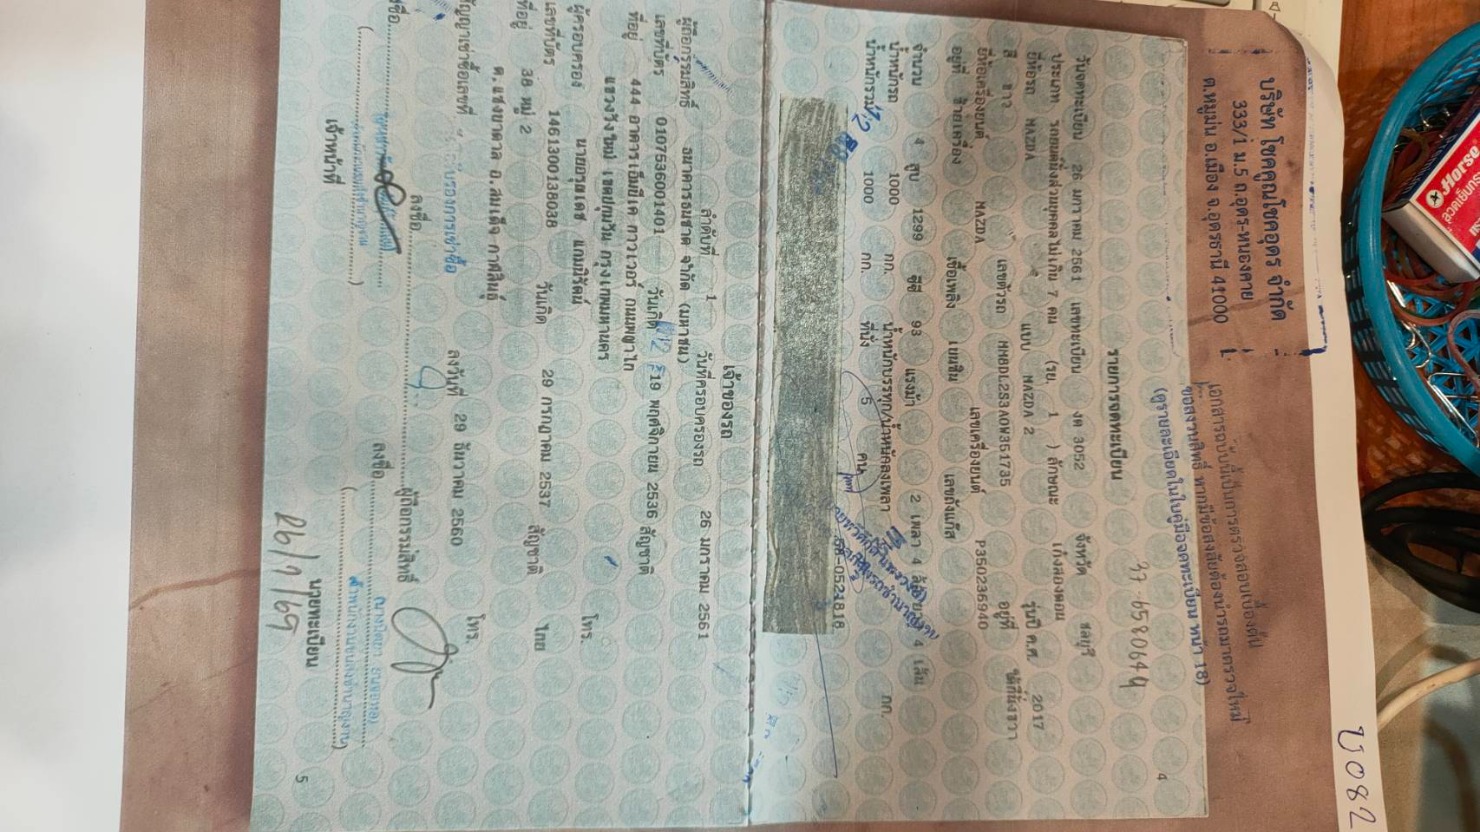 บริษัท โชคคูณโชคอุดร จำกัด
333/1 ม.5 ถ.อุดร-หนองคาย
ต.หมูม่น อ.เมือง จ.อุดรธานี 41000
Horse
เอกสารฉบับนี้เป็นการตรวจสอบเบื้องต้น
ขอสงวนสิทธิ์ หากมีข้อสงสัยต้องนำรถมาตรวจใหม่
(ดูรายละเอียดในใบคู่มือจดทะเบียน หน้า 18)
4
37-6580644
รายการจดทะเบียน
วันจดทะเบียน 26 มกราคม 2561 เลขทะเบียน งด 3052 จังหวัด ชลบุรี
ประเภท รถยนต์นั่งส่วนบุคคลไม่เกิน 7 คน (รย. 1 ) ลักษณะ เก๋งสองตอน
ยี่ห้อรถ MAZDA แบบ MAZDA 2 รุ่นปี ค.ศ. 2017
สี ขาว เลขตัวรถ MM8DL2S3A0W351735 อยู่ที่ ใต้ที่นั่งขวา
ยี่ห้อเครื่องยนต์ MAZDA เลขเครื่องยนต์ P350236940
อยู่ที่ ซ้ายเครื่อง เชื้อเพลิง เบนซิน เลขถังแก๊ส
จำนวน 4 สูบ 1299 ซีซี 93 แรงม้า 2 เพลา 4 ล้อ ยาง 4 เส้น
น้ำหนักรถ 1000 กก. น้ำหนักบรรทุก/น้ำหนักลงเพลา กก.
น้ำหนักรวม 1000 กก. ที่นั่ง 5 คน
58-0521818
เจ้าของรถ
ลำดับที่ 1 วันที่ครอบครองรถ 26 มกราคม 2561
ผู้ถือกรรมสิทธิ์ ธนาคารธนชาต จำกัด (มหาชน)
เลขที่บัตร 0107536001401 วันเกิด 19 พฤศจิกายน 2536 สัญชาติ
ที่อยู่ 444 อาคารเอ็มบีเค ทาวเวอร์ ถนนพญาไท
แขวงวังใหม่ เขตปทุมวัน กรุงเทพมหานคร โทร.
ผู้ครอบครอง
เลขที่บัตร 1461300138038 วันเกิด 29 กรกฎาคม 2537 สัญชาติ ไทย
ที่อยู่ 38 หมู่ 2
ต.แซงบาดาล อ.สมเด็จ กาฬสินธุ์ โทร.
สัญญาเช่าซื้อเลขที่ ลงวันที่ 29 ธันวาคม 2560
ลงชื่อ ผู้ถือกรรมสิทธิ์
ลงชื่อ ลงชื่อ
เจ้าหน้าที่ นายทะเบียน
26/1/69
5
ข082